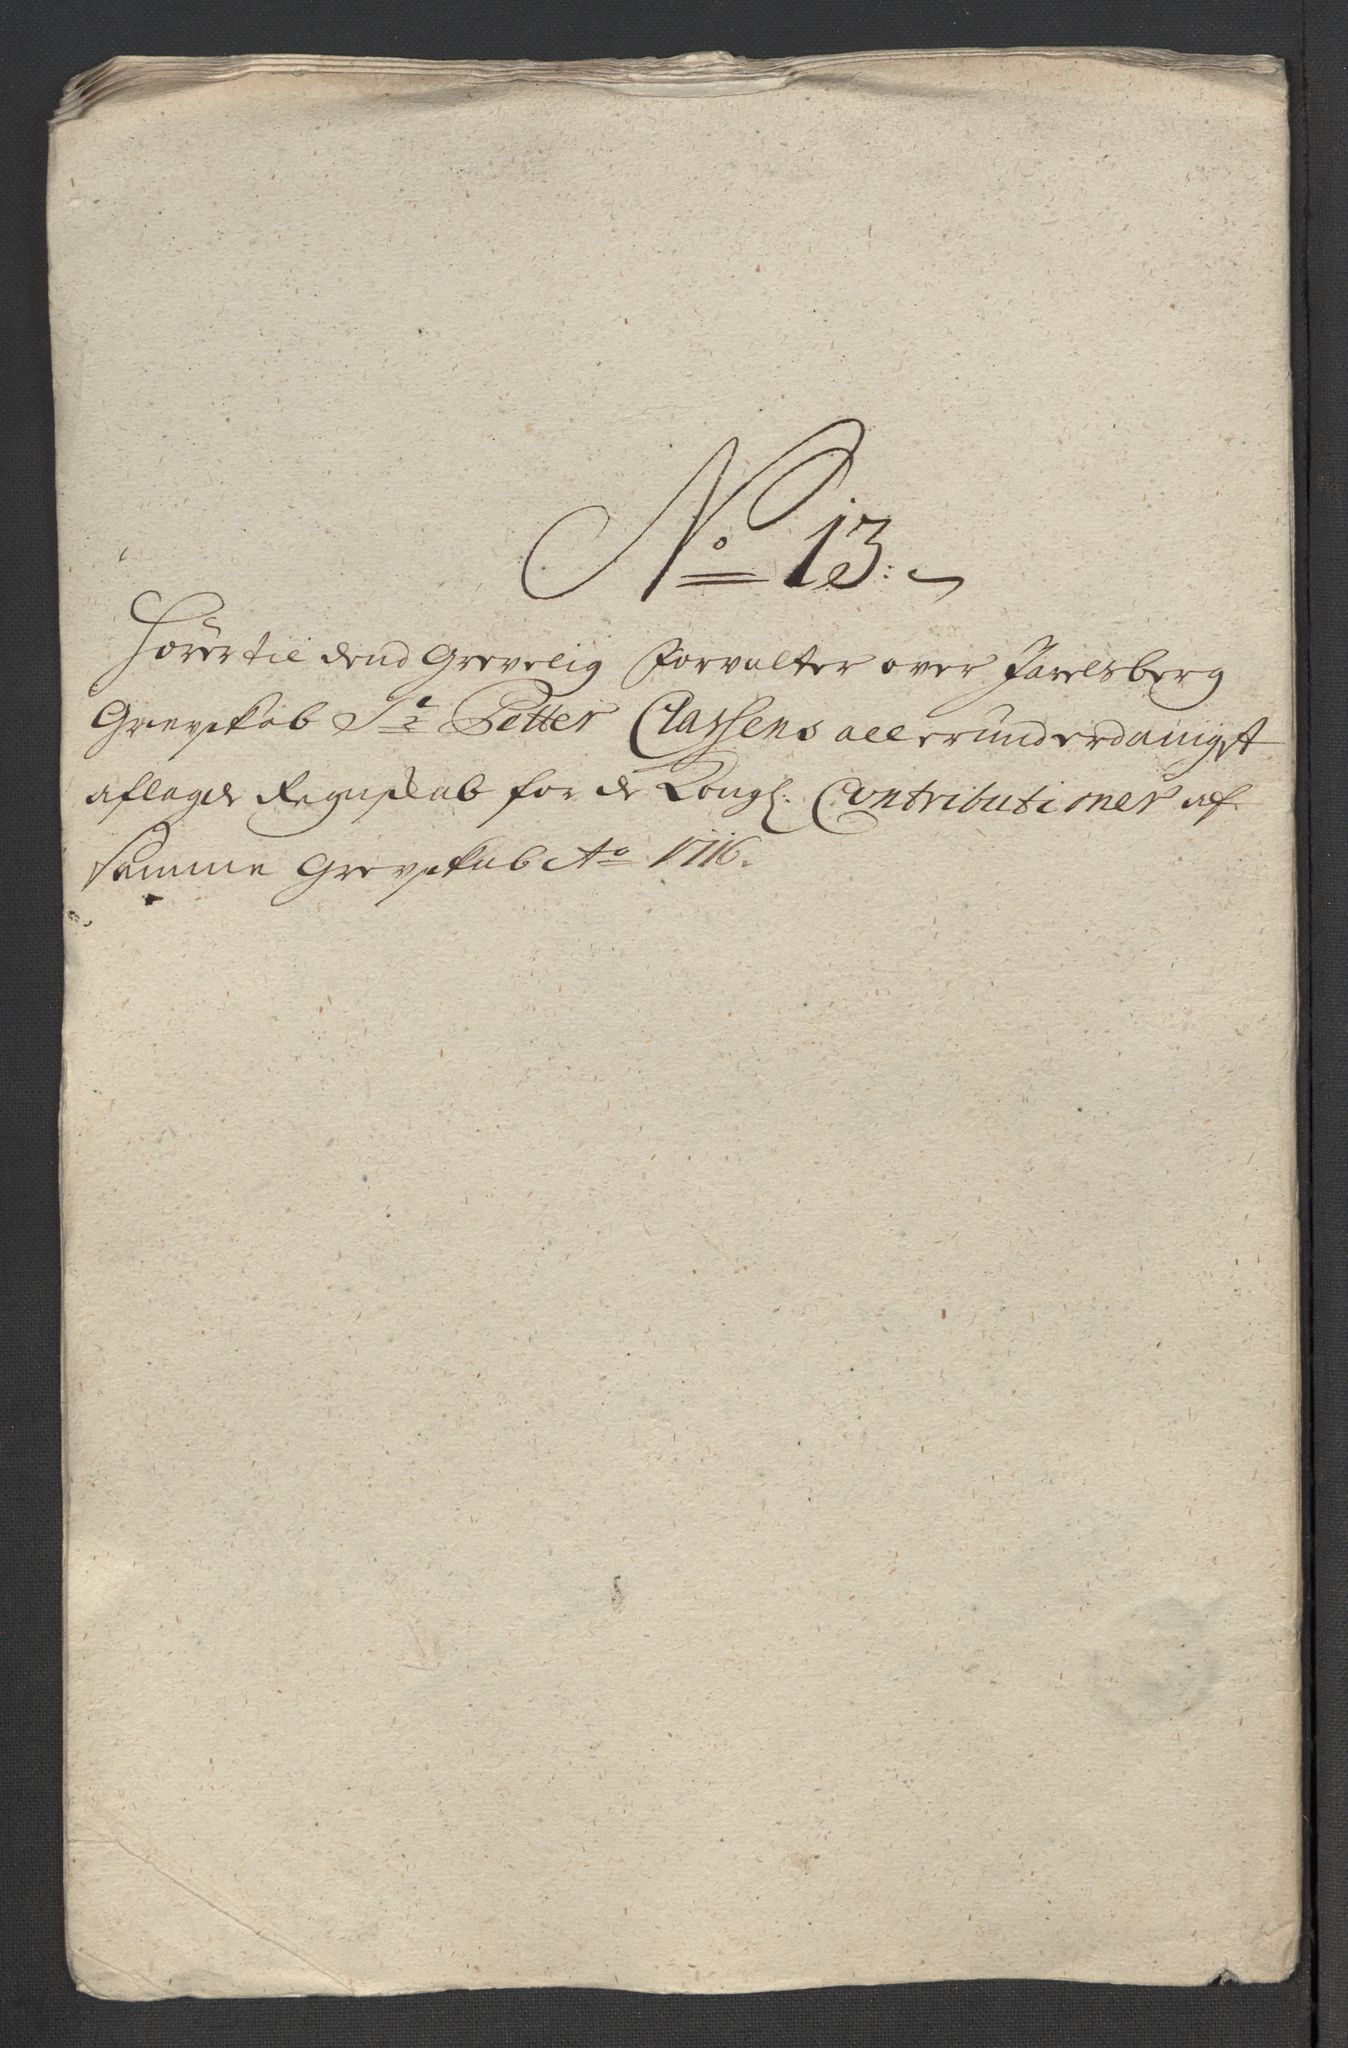 No 13.
Hörer til dend Grevelig Forvalter over Jarelsberg
Grevskab Sr Petter Classens allerunderdanigst
aflagde Regnskab for de Kongl: Contributioner af
samme Grevskab Ao 1716.